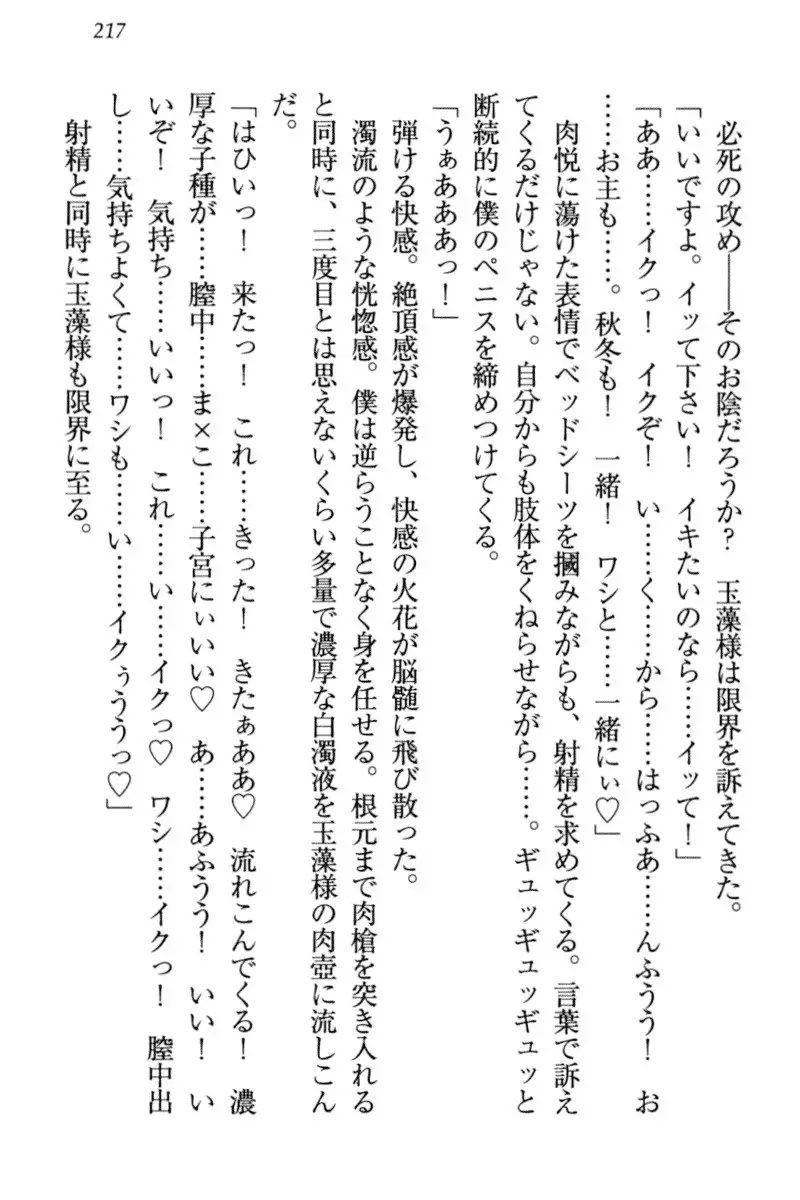 217
必死の攻め――そのお陰だろうか？　玉藻様は限界を訴えてきた。
「いいですよ。イッて下さい！　イキたいのなら……イッて！」
「ああ……イクっ！　イクぞ！　い……く……から……はっふあ……んふうう！　お
……お主も……。秋冬も！　一緒！　ワシと……一緒にぃ♡」
肉悦に蕩けた表情でベッドシーツを摑みながらも、射精を求めてくる。言葉で訴え
てくるだけじゃない。自分からも肢体をくねらせながら……。ギュッギュッギュッと
断続的に僕のペニスを締めつけてくる。
「うぁあああっ！」
弾ける快感。絶頂感が爆発し、快感の火花が脳髄に飛び散った。
濁流のような恍惚感。僕は逆らうことなく身を任せる。根元まで肉槍を突き入れる
と同時に、三度目とは思えないくらい多量で濃厚な白濁液を玉藻様の肉壺に流しこん
だ。
「はひいっ！　来たっ！　これ……きった！　きたぁああ♡　流れこんでくる！　濃
厚な子種が……膣中……ま×こ……子宮にぃいい♡　あ……あふうう！　いい！　い
いぞ！　気持ち……いいっ！　これ……い……イクっ♡　ワシ……イクっ！　膣中出
し……気持ちよくて……ワシも……い……イクぅううっ♡」
射精と同時に玉藻様も限界に至る。